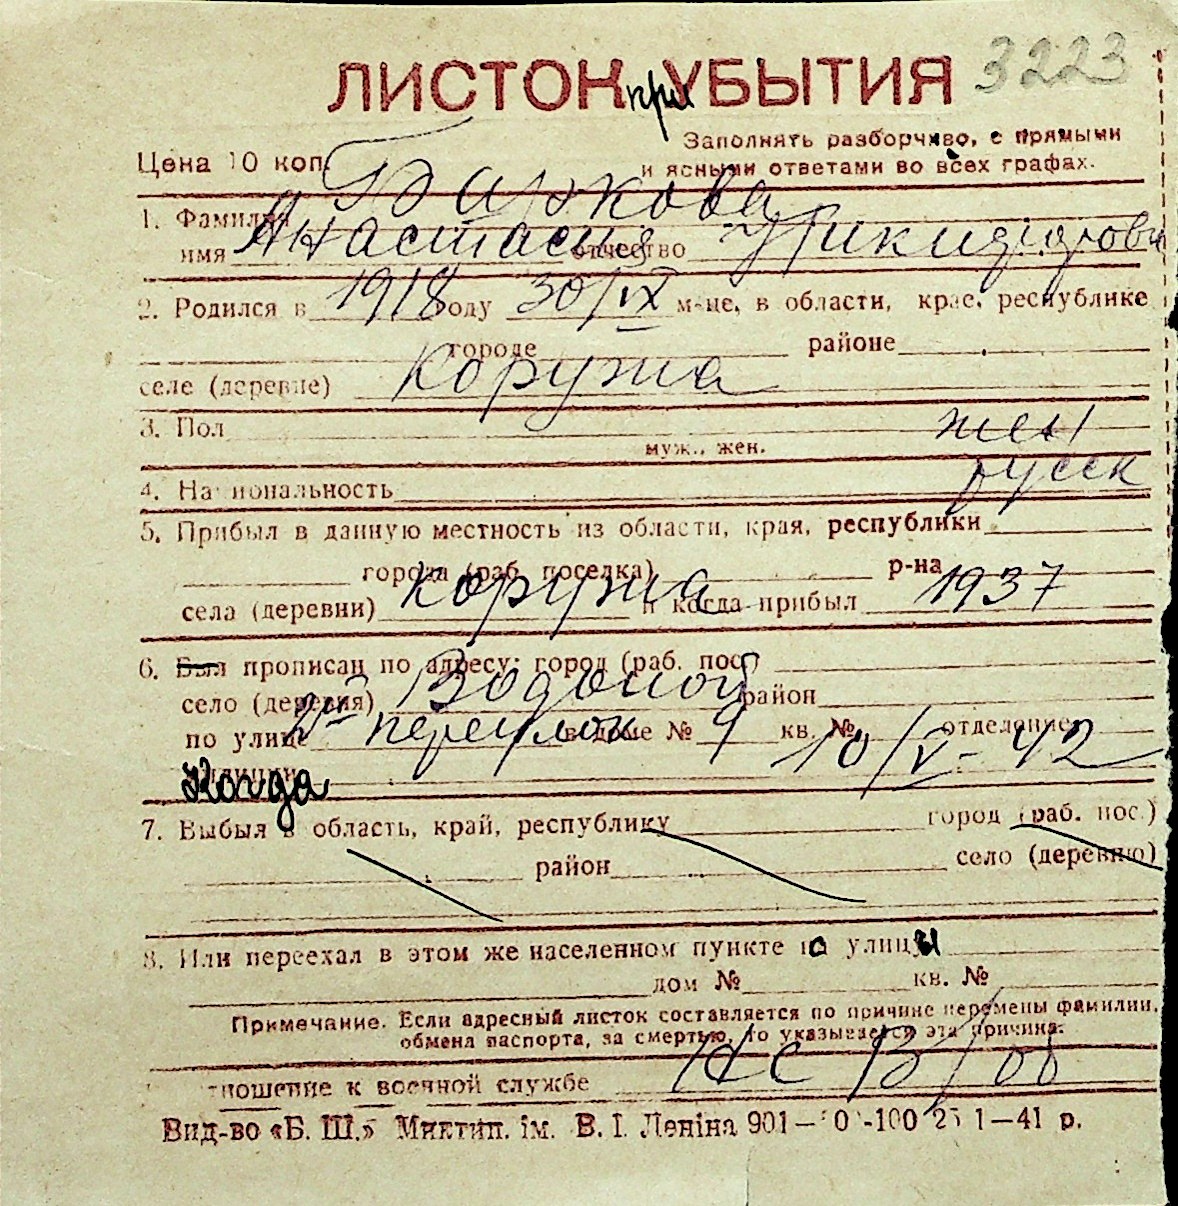 3223
ЛИСТОК при УБЫТИЯ
Заполнять разборчиво, с прямыми
и ясными ответами во всех графах.
Цена 10 коп.
1. Фамилия Баркова
имя Анастасия отчество Никидоровн
2. Родился в 1918 году 30/IX м-це, в области, крае, республике
городе районе
селе (деревне) Коружа
3. Пол жен
муж., жен.
4. Национальность русск
5. Прибыл в данную местность из области, края, республики
города (раб. поселка) р-на
села (деревни) Коружа и когда прибыл 1937
6. Был прописан по адресу: город (раб. пос.)
село (деревня) Водяной район
по улице 2й переулок в доме № 9 кв. № отделение
милиции Когда 10/V-42
7. Выбыл в область, край, республику город (раб. пос.)
район село (деревню)
8. Или переехал в этом же населенном пункте на с улицу ы
дом № кв. №
Примечание. Если адресный листок составляется по причине перемены фамилии,
обмена паспорта, за смертью, то указывается эта причина.
Отношение к военной службе
Вид-во «Б. Ш.» Миктип. ім. В. І. Леніна 901— 0 -100 25 1—41 р.